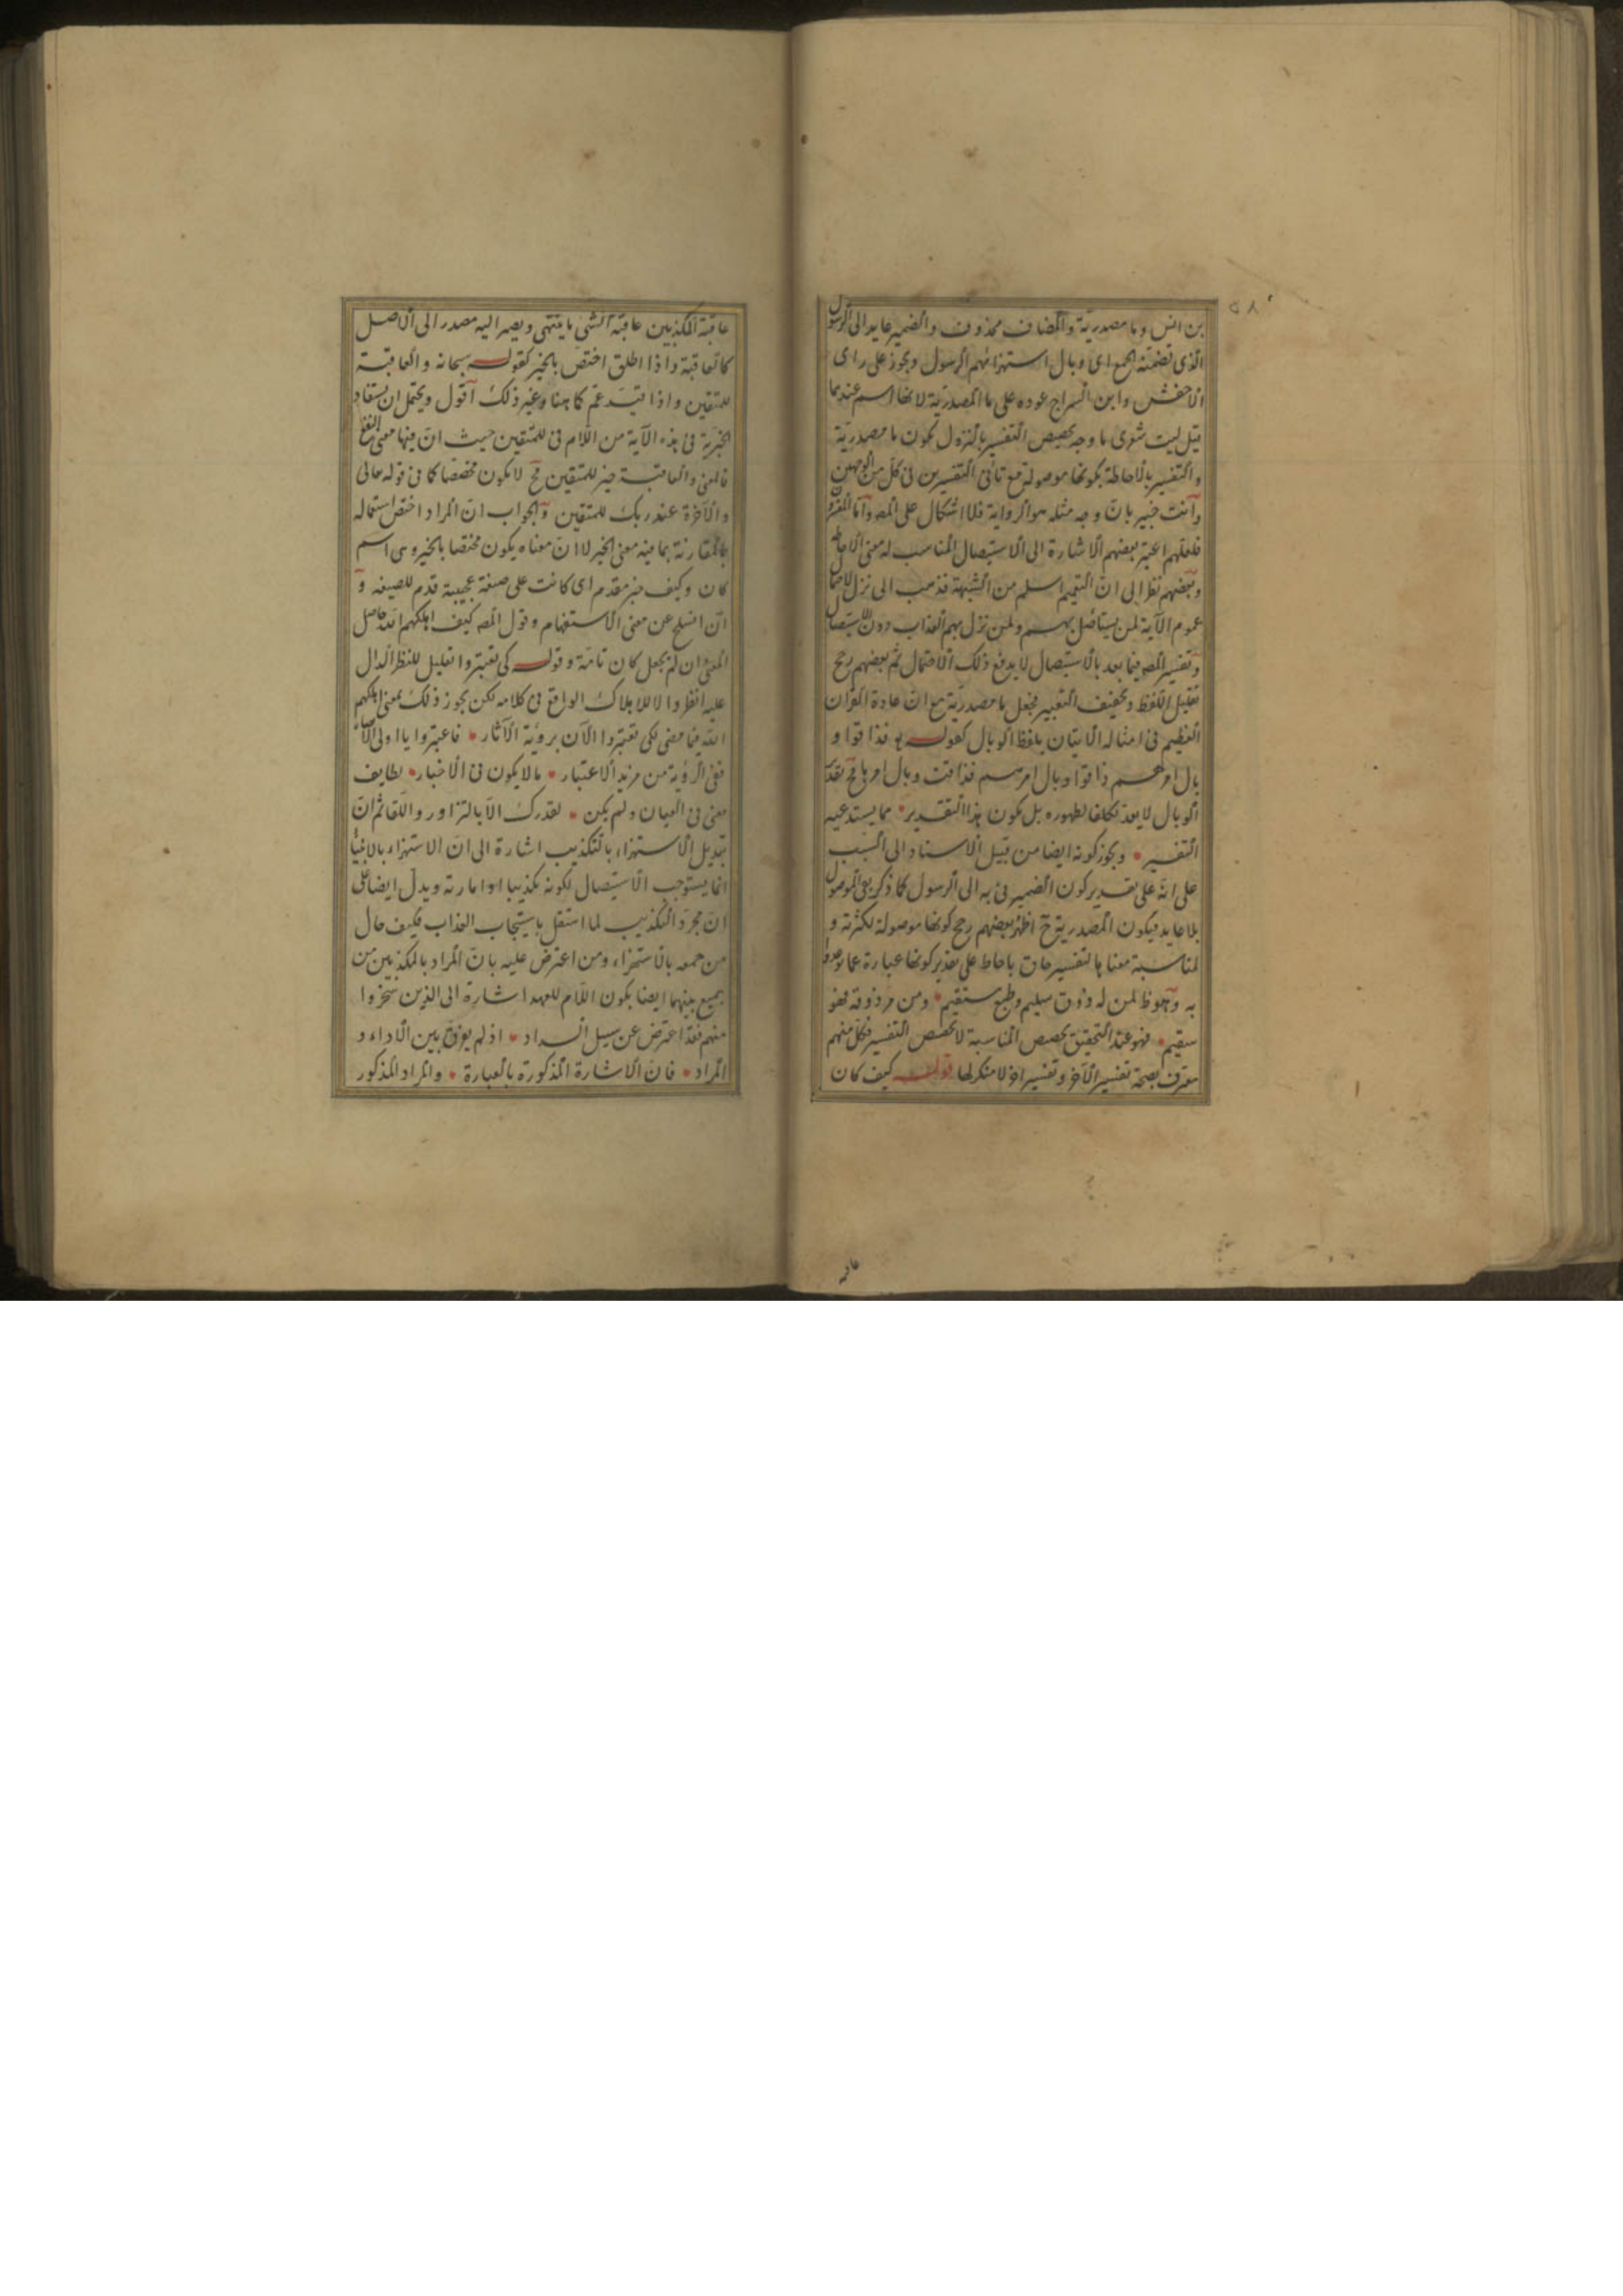 بن انس وما مصدرية والمضاف محذوف والضمير عايد الى الرسول
الذى تضمنه الجمع اى وبال استهزائهم الرسول ويجوز على راى
الاخفش وابن السراج عوده على ما المصدرية لانها اسم عندهما
قيل ليت شعرى ما وجه تخصيص التفسير بالنزول بكون ما مصدرية
والتفسير بالاحاطة بكونها موصولة مع تأتى التفسيرين فى كل من الوجهين
وانت خبير بان وجه مثله هو الرواية فلا اشكال على المص واما
فلعلهم اعتبر بعضهم الاشارة الى الاستيصال المناسب له معنى الاحاطة
وبعضهم نظر الى ان التعميم اسلم من الشبهة فذهب الى نزل
عموم الآية لمن يستأصل بهم ولمن نزل بهم العذاب دون الاستيصال
وتفسير المص فيما بعد بالاستيصال لا يدفع ذلك الاحتمال ثم بعضهم رجح
تقليل اللفظ وتخفيف التعبير فجعل ما مصدرية مع ان عادة القرآن
العظيم فى امثاله الاتيان بلفظ الوبال كقوله فذاقوا و
بال امرهم ذاقوا وبال امرهم فذاقت وبال امرها فح تقدير
الوبال لا يعد تكلفا لظهوره بل يكون هذا التقدير مما يستدعيه
التفسير ويجوز كونه ايضا من قبيل الاسناد الى السبب
على انه على تقدير كون الضمير فى به الى الرسول كما ذكر بقى الموصول
بلا عايد فيكون المصدرية ح اظهر بعضهم رجح كونها موصولة لكثرته و
لمناسبة معناها لتفسير حاق باحاط على تقدير كونها عبارة عما
به وملحوظ لمن له ذوق سليم وطبع مستقيم ومن مر ذوقه فهو
سقيم فهو عند التحقيق تخصيص المناسبة لا تخصيص التفسير فكل منهم
معترف بصحة تفسير الآخر وتفسير اخر لا منكر لها قوله كيف كان
عاقبة
عاقبة المكذبين عاقبة الشى ما ينتهى ويصير اليه مصدر الى الاصل
كالعاقبة واذا اطلق اختص بالخير كقوله سبحانه والعاقبة
للمتقين واذا قيد عم كما هنا وغير ذلك اقول ويحتمل ان يستفاد
الخيرية فى هذه الآية من اللام فى للمتقين حيث ان فيها معنى النفع
فالمعنى والعاقبة خير للمتقين فح لا يكون مخصصا كما فى قوله تعالى
والآخرة عند ربك للمتقين والجواب ان المراد اختص استعماله
بالمقارنة بما فيه معنى الخير لا ان معناه يكون مختصا بالخير وهى اسم
كان وكيف خبر مقدم اى كانت على صفة عجيبة قدم للصيغه و
ان انسلخ عن معنى الاستفهام وقول المص كيف اهلكهم الله حاصل
المعنى وان لم يجعل كان تامة وقوله كى تعتبروا تعليل للنظر الدال
عليه انظروا لا للاهلاك الواقع فى كلامه لكن يجوز ذلك بمعنى اهلكهم
الله فيما مضى لكى تعتبروا الآن برؤية الآثار فاعتبروا يا اولى الابصار
ففى الرؤية من مزيد الاعتبار ما لا يكون فى الاخبار لطايف
معنى فى العيان ولم يكن لتدرك الا بالتزاور واللقا ثم ان
تبديل الاستهزاء بالتكذيب اشارة الى ان الاستهزاء بالانبياء
انما يستوجب الاستيصال لكونه تكذيبا او امارته ويدل ايضا على
ان مجرد التكذيب لما استقل باستيجاب العذاب فكيف حال
من جمعه بالاستهزاء ومن اعترض عليه بان المراد بالمكذبين من
يجمع بينهما ايضا بكون اللام للعهد اشارة الى الذين سخروا
منهم فقد اعترض عن سبيل السداد اذ لم يفرق بين الاداء و
المراد فان الاشارة المذكورة بالعبارة والمراد المذكور